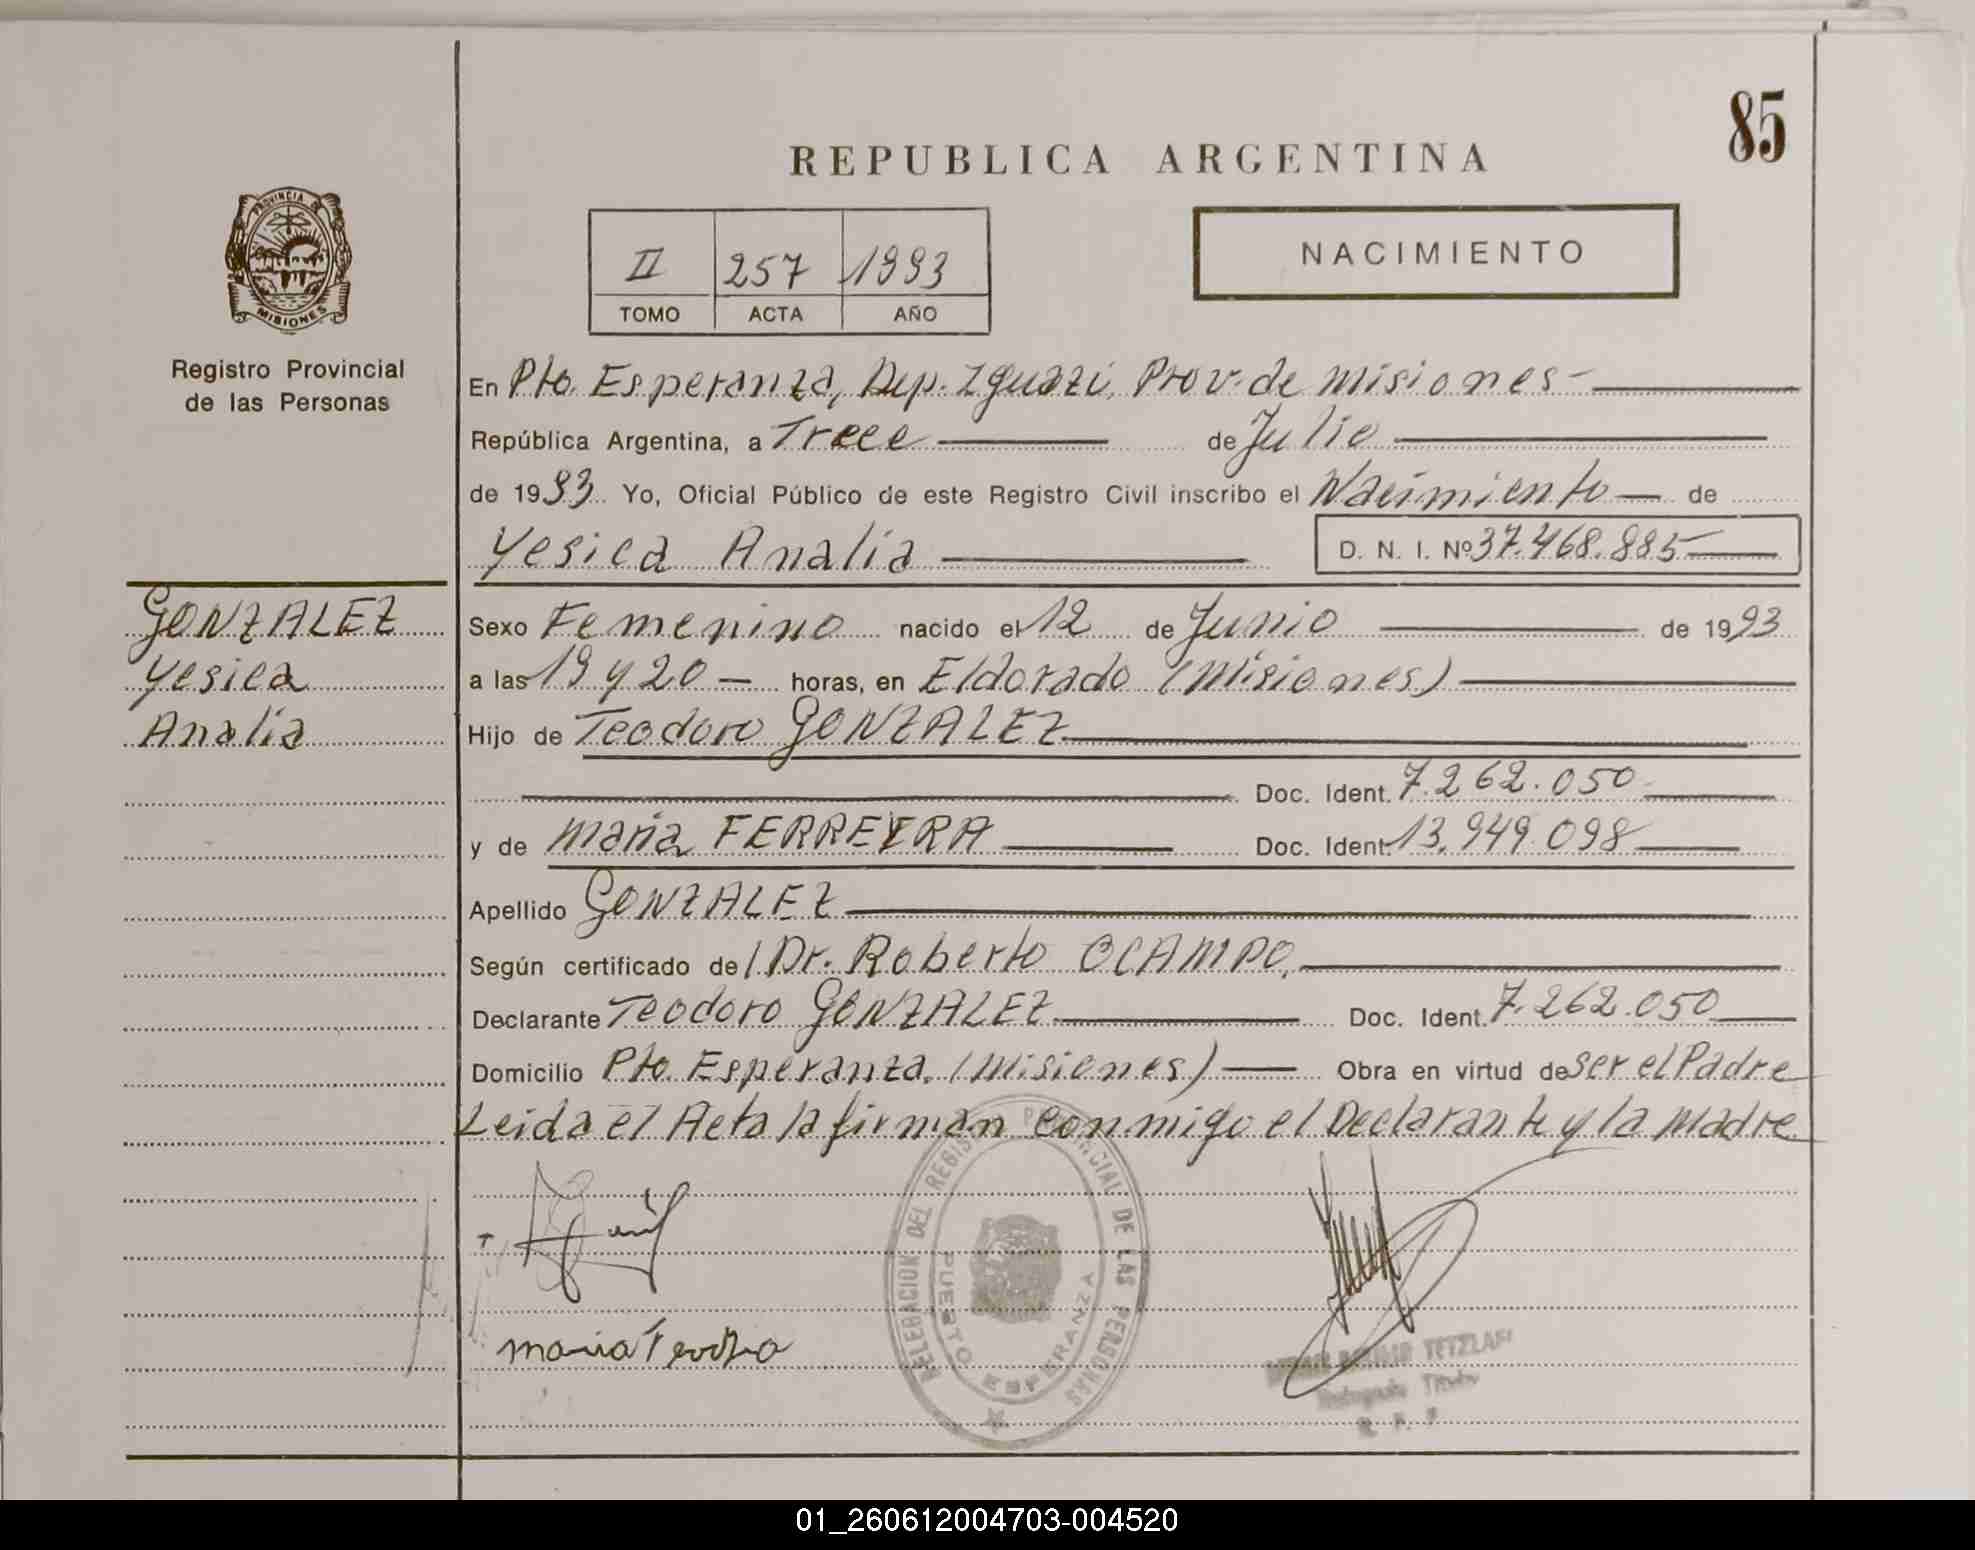 85
REPUBLICA ARGENTINA
PROVINCIA DE
MISIONES
Registro Provincial
de las Personas
II 257 1993
TOMO ACTA AÑO
NACIMIENTO
En Pto. Esperanza, Dep. Iguazú, Prov. de Misiones-
República Argentina, a Trece de Julio
de 1993 Yo, Oficial Público de este Registro Civil inscribo el Nacimiento de
Yesica Analía D. N. I. Nº 37.468.885
GONZALEZ
Yesica
Analía
Sexo Femenino nacido el 12 de Junio de 1993
a las 19 y 20 horas, en Eldorado (Misiones)
Hijo de Teodoro GONZALEZ
Doc. Ident. 7.262.050
y de Maria FERREYRA Doc. Ident. 13.949.098
Apellido GONZALEZ
Según certificado del Dr. Roberto OCAMPO,
Declarante Teodoro GONZALEZ Doc. Ident. 7.262.050
Domicilio Pto. Esperanza. (Misiones) Obra en virtud de ser el Padre
Leida el Acta la firman conmigo el Declarante y la Madre
DELEGACION DEL REGISTRO PROVINCIAL DE LAS PERSONAS
PUERTO ESPERANZA
maria
TETZLAF
Titular
R. P. P.
01_260612004703-004520